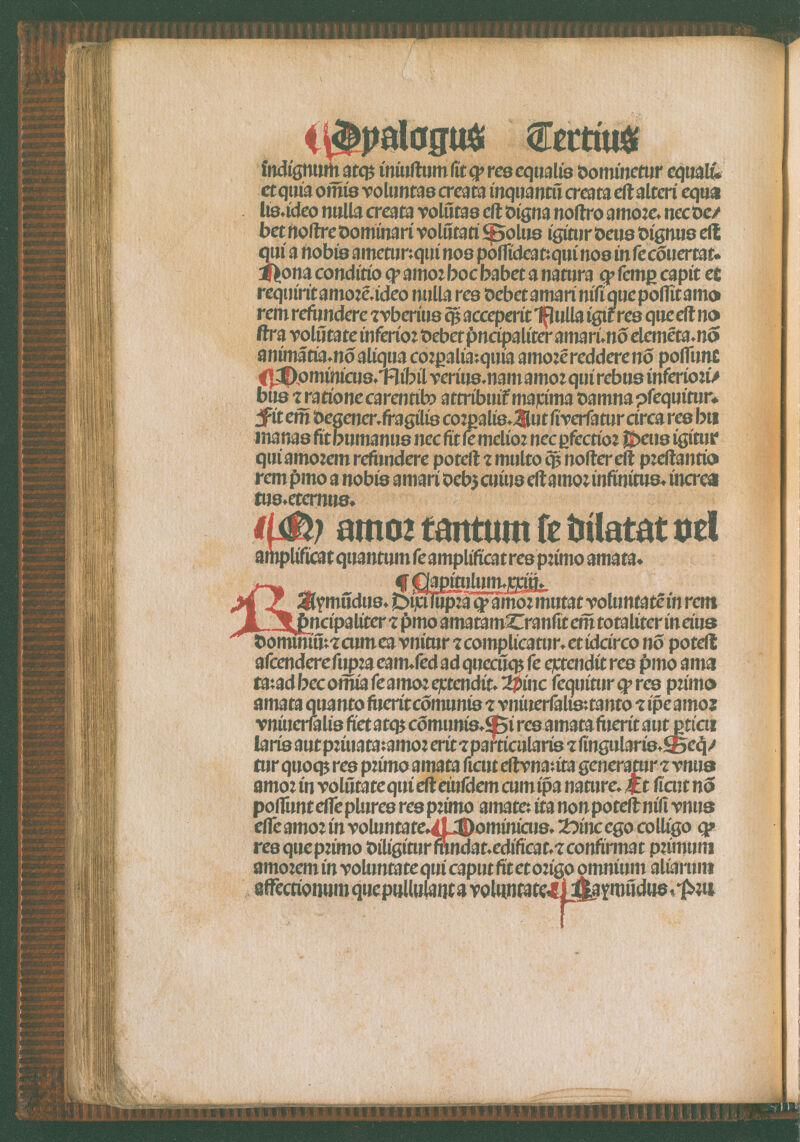 ¶ Dyalogus Tertius
indignum atqꝫ iniustum sit ꝙ res equalis dominetur equali.
et quia om̄is voluntas creata inquantū creata est alteri equa
lis.ideo nulla creata volūtas est digna nostro amore. nec de/
bet nostre dominari volūtati Solus igitur deus dignus est
qui a nobis ametur:qui nos possideat:qui nos in se cōuertat.
Nona conditio ꝙ amor hoc habet a natura ꝙ semꝑ capit et
requirit amorē.ideo nulla res debet amari nisi que possit amo
rem refundere ⁊ vberius q̄ꝫ acceperit Nulla igit̃ res que est no
stra volūtate inferior debet p̍ncipaliter amari.nō elemēta.nō
animātia.nō aliqua corꝑalia:quia amorē reddere nō possunt
¶ Dominicus. Nihil verius.nam amor qui rebus inferiori/
bus ⁊ ratione carentibꝰ attribuit̃ maxima damna ꝯsequitur.
Fit em̄ degener.fragilis corꝑalis. Aut si versatur circa res hu
manas fit humanus nec fit se melior nec ꝑfectior Deus igitur
qui amorem refundere potest ⁊ multo q̄ꝫ noster est prestantio
rem p̍mo a nobis amari debꝫ cuius est amor infinitus. increa
tus.eternus.
¶ Qꝙ amor tantum se dilatat vel
amplificat quantum se amplificat res primo amata.
¶ Capitulum.xxiij.
RAymūdus. Dixi supra ꝙ amor mutat voluntatē in rem
p̍ncipaliter ⁊ p̍mo amatam Transit em̄ totaliter in eius
dominiū:⁊ cum ea vnitur ⁊ complicatur. et idcirco nō potest
ascendere supra eam.sed ad quecūqꝫ se extendit res p̍mo ama
ta:ad hec om̄ia se amor extendit. Hinc sequitur ꝙ res primo
amata quanto fuerit cōmunis ⁊ vniuersalis:tanto ⁊ ip̄e amor
vniuersalis fiet atqꝫ cōmunis. Si res amata fuerit aut ꝑticu
laris aut priuata:amor erit ⁊ particularis ⁊ singularis. Seq̍/
tur quoqꝫ res primo amata sicut est vna:ita generatur ⁊ vnus
amor in volūtate qui est eiusdem cum ip̄a nature. Et sicut nō
possunt esse plures res primo amate: ita non potest nisi vnus
esse amor in voluntate. ¶ Dominicus. Hinc ego colligo ꝙ
res que primo diligitur fundat.edificat.⁊ confirmat primum
amorem in voluntate qui caput fit et origo omnium aliarum
affectionum que pullulant a voluntate. ¶ Raymūdus. Pru